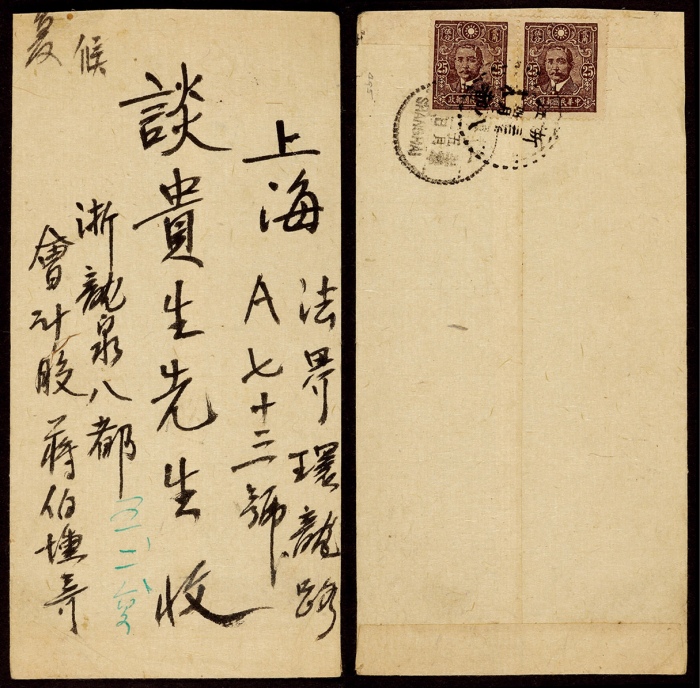 上海法界環龍路
A七十三號
談貴生先生收
浙龍泉八都
會計股蔣伯壎寄
夏候
25 25
中華民國郵政
25 25
中華民國郵政
SHANGHAI